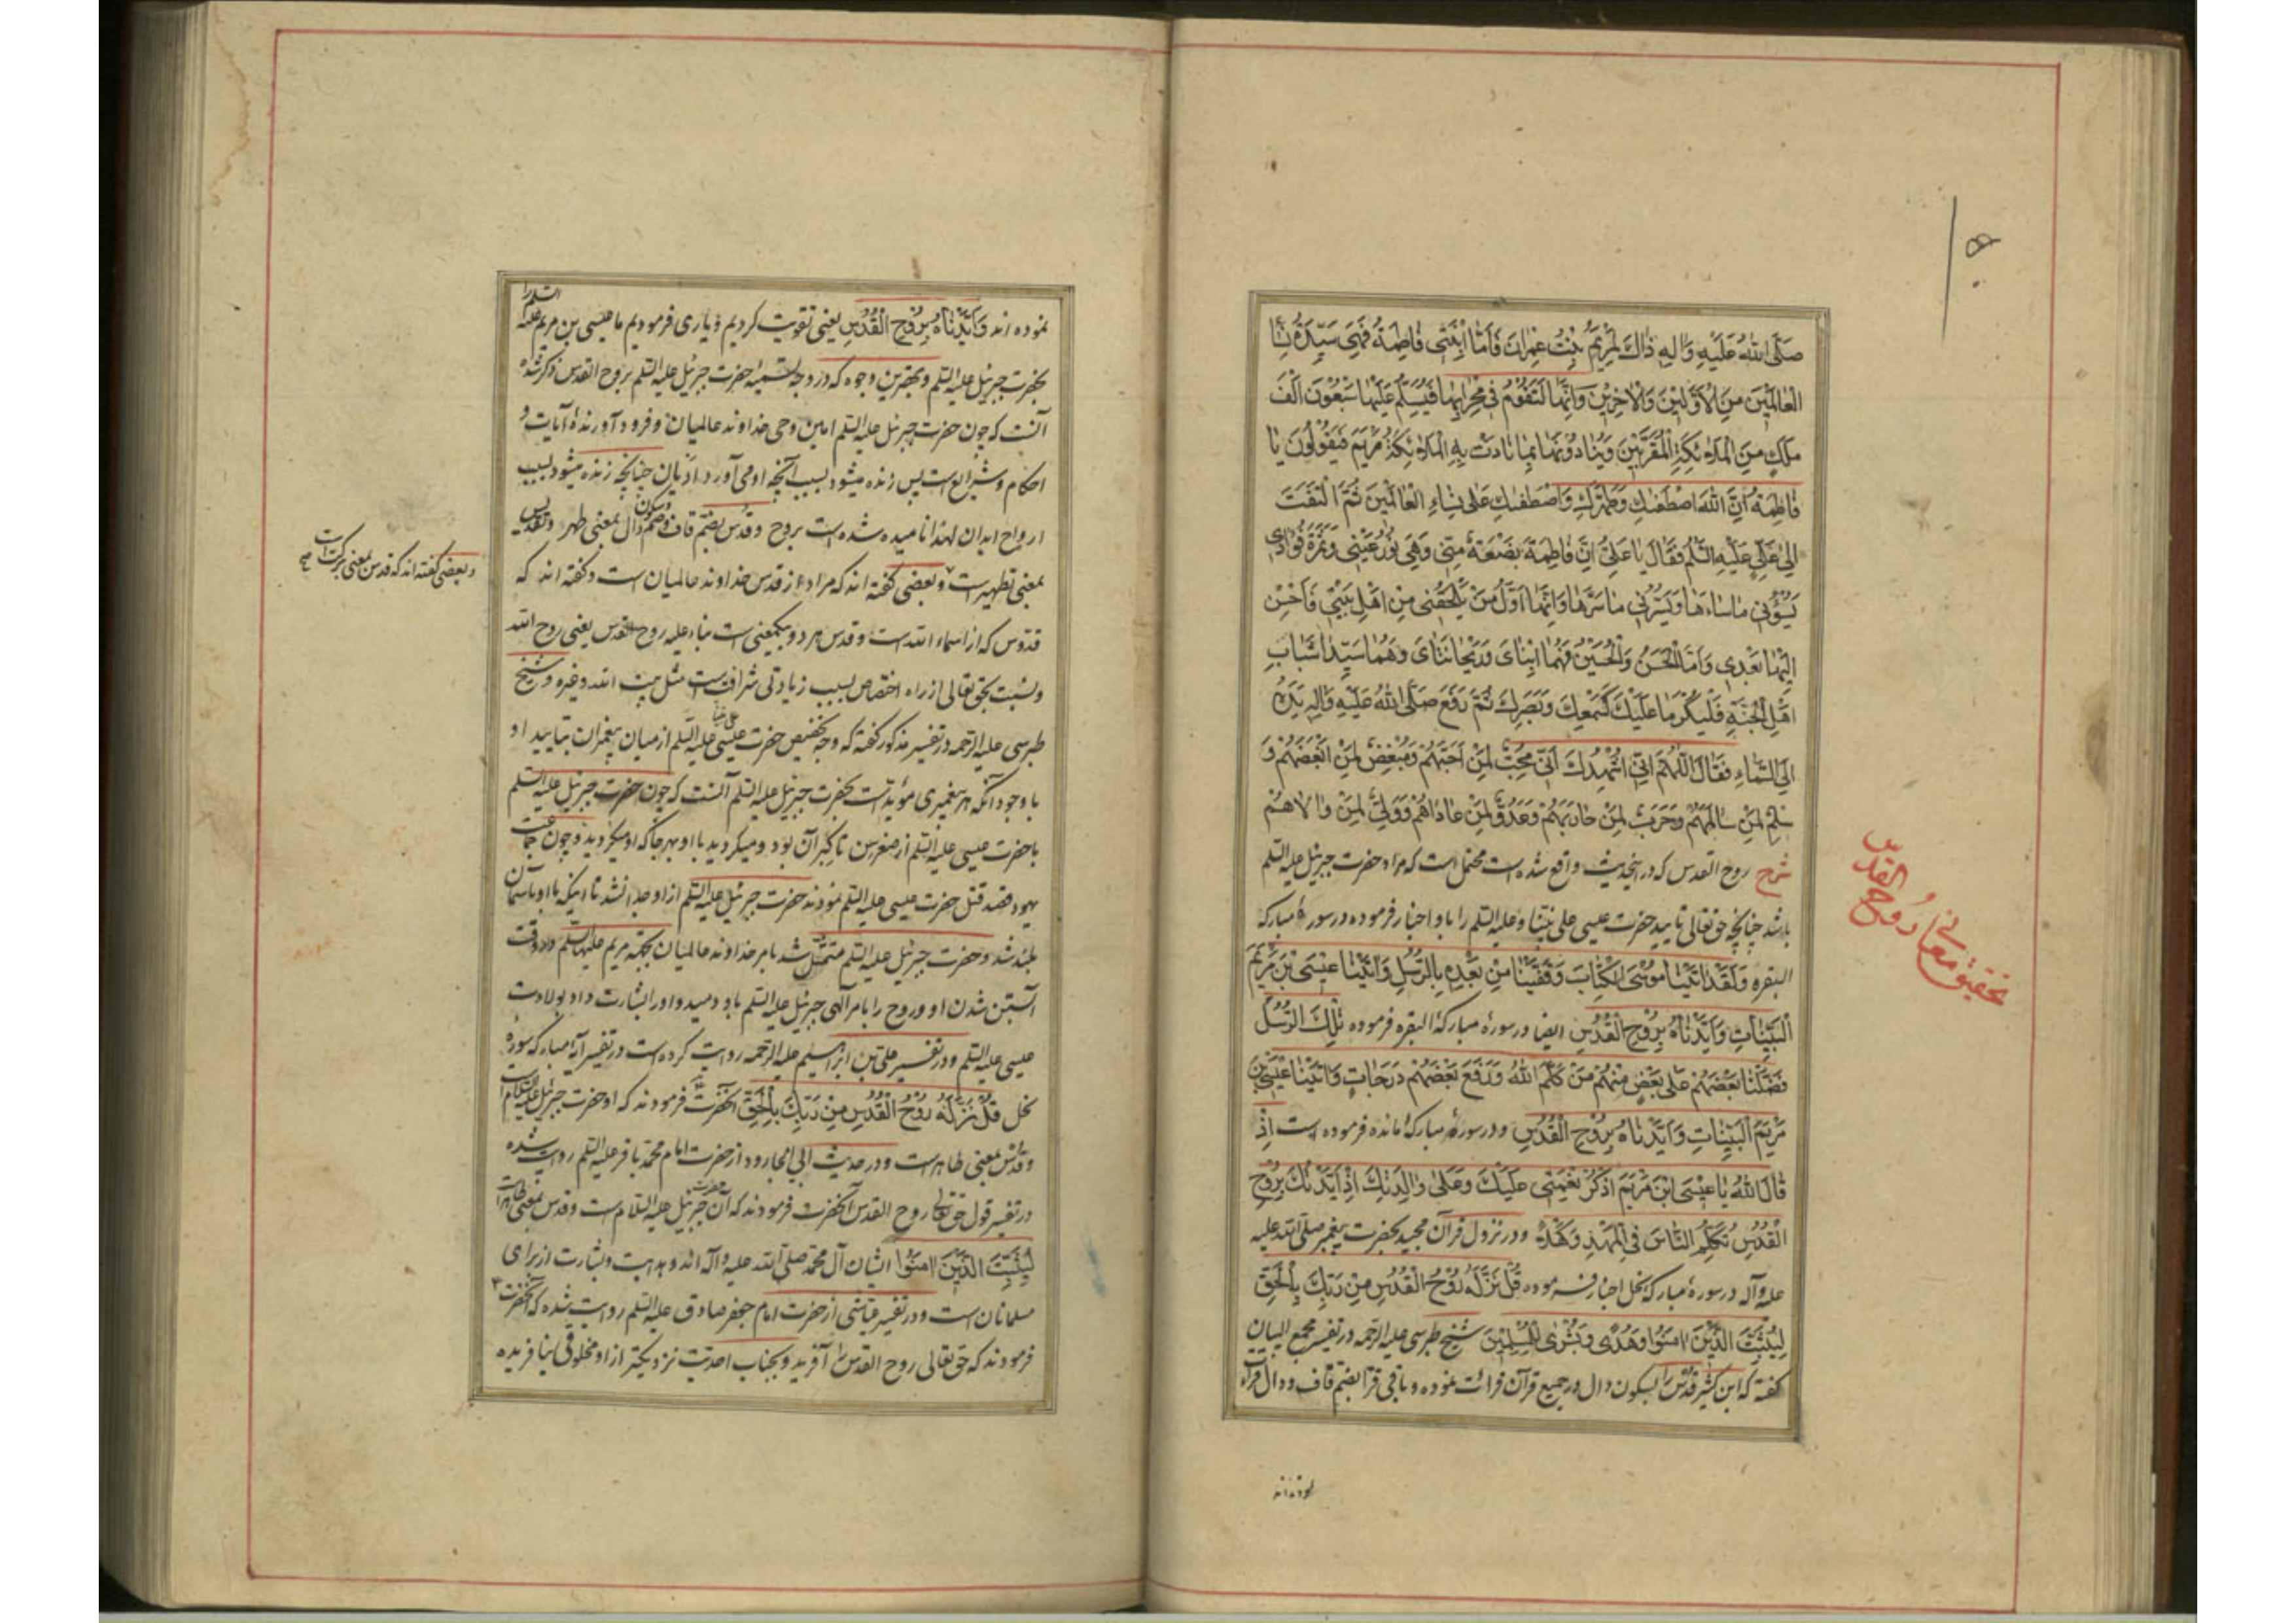 صَلَّى اللهُ عَلَيْهِ وَالِهِ ذَاكَ لِمَرْيَمَ بِنْتِ عِمْرانَ فَاَمَّا ابْنَتِى فَاطِمَةُ فَهِىَ سَيِّدَةُ نِسَاءِ
الْعالَمِينَ مِنَ الْاَوَّلِينَ وَالْاخِرِينَ وَاِنَّهَا لَتَقُوْمُ فِى مِحْرابِهَا فَيُسَلِّمُ عَلَيْهَا سَبْعُونَ اَلْفَ
مَلَكٍ مِنَ الْمَلَائِكَةِ الْمُقَرَّبِينَ وَيُنَادُوْنَهَا بِمَا نَادَتْ بِهِ الْمَلَائِكَةُ مَرْيَمَ فَيَقُولُونَ يَا
فَاطِمَةُ اِنَّ اللهَ اصْطَفٰيكِ وَطَهَّرَكِ وَاصْطَفٰيكِ عَلٰى نِسَاءِ الْعَالَمِينَ ثُمَّ الْتَفَتَ
اِلٰى عَلِىٍّ عَلَيْهِ السَّلَمُ فَقَالَ يَا عَلِىُّ اِنَّ فَاطِمَةَ بَضْعَةٌ مِنِّى وَهِىَ نُوْرُ عَيْنِى وَثَمَرَةُ فُؤادِى
يَسُوْئُنِى مَا سَاءَهَا وَيَسُرُّنِى مَا سَرَّهَا وَاِنَّهَا اَوَّلُ مَنْ يَلْحَقُنِى مِنْ اَهْلِ بَيْتِى فَاَحْسِنْ
اِلَيْهَا بَعْدِى وَاَمَّا الْحَسَنُ وَالْحُسَيْنُ فَهُمَا ابْنَاىَ وَرَيْحَانَتَاىَ وَهُمَا سَيِّدَا شَبَابِ
اَهْلِ الْجَنَّةِ فَلْيَكُرْمَا عَلَيْكَ كَسَمْعِكَ وَبَصَرِكَ ثُمَّ رَفَعَ صَلَّى اللهُ عَلَيْهِ وَالِهِ يَدَهُ
اِلَى السَّمَاءِ فَقَالَ اَللّٰهُمَّ اِنِّى اُشْهِدُكَ اَنِّى مُحِبٌّ لِمَنْ اَحَبَّهُمْ وَمُبْغِضٌ لِمَنْ اَبْغَضَهُمْ وَ
سِلْمٌ لِمَنْ سَالَمَهُمْ وَحَرْبٌ لِمَنْ حَارَبَهُمْ وَعَدُوٌّ لِمَنْ عَادَاهُمْ وَوَلِىٌّ لِمَنْ وَالَاهُمْ
شرح روح القدس که در این‌حدیث واقع شده است محتمل است که مراد حضرت جبرئیل علیه السّلم
باشد چنانچه حق تعالی تایید حضرت عیسی علی نبیّنا وعلیه السّلم را باو اخبار فرموده در سورهٔ مبارکه
البقره وَلَقَدْ اتَيْنَا مُوْسَى الْكِتَابَ وَقَفَّيْنَا مِنْ بَعْدِهِ بِالرُّسُلِ وَاتَيْنَا عِيْسَى بْنَ مَرْيَمَ
الْبَيِّنَاتِ وَاَيَّدْنَاهُ بِرُوْحِ الْقُدُسِ ایضا در سورهٔ مبارکهٔ البقره فرموده تِلْكَ الرُّسُلُ
فَضَّلْنَا بَعْضَهُمْ عَلٰى بَعْضٍ مِنْهُمْ مَنْ كَلَّمَ اللهُ وَرَفَعَ بَعْضَهُمْ دَرَجَاتٍ وَاتَيْنَا عِيْسَى بْنَ
مَرْيَمَ الْبَيِّنَاتِ وَاَيَّدْنَاهُ بِرُوْحِ الْقُدُسِ ودر سورهٔ مبارکهٔ مائده فرموده است اِذْ
قَالَ اللهُ يَا عِيْسَى ابْنَ مَرْيَمَ اذْكُرْ نِعْمَتِى عَلَيْكَ وَعَلٰى وَالِدَتِكَ اِذْ اَيَّدْتُكَ بِرُوْحِ
الْقُدُسِ تُكَلِّمُ النَّاسَ فِى الْمَهْدِ وَكَهْلًا ودر نزول قرآن مجید بحضرت پیغمبر صلّی الله علیه
علیه وآله در سورهٔ مبارکهٔ نحل اخبار فرموده قُلْ نَزَّلَهُ رُوْحُ الْقُدُسِ مِنْ رَبِّكَ بِالْحَقِّ
لِيُثَبِّتَ الَّذِيْنَ امَنُوْا وَهُدًى وَبُشْرٰى لِلْمُسْلِمِيْنَ شیخ طبرسی علیه الرّحمه در تفسیر مجمع البیان
گفته که ابن کثیر قدس را بسکون دال در جمیع قرآن قرائت نموده و باقی قرّا بضمّ قاف و دال قراءت
تحقیق معانی روح القدس
نموده‌اند
نموده اند وَاَيَّدْنَاهُ بِرُوْحِ الْقُدُسِ یعنی تقویت کردیم ویاری فرمودیم ما عیسی بن مریم علیه السّلم را
بحضرت جبرئیل علیه السّلم وبهترین وجوه که در وجه تسمیهٔ حضرت جبرئیل علیه السّلم بروح القدس ذکر شده
آنست که چون حضرت جبرئیل علیه السّلم امین وحی خداوند عالمیان وفرود آورندهٔ آیات و
احکام وشرایع است پس زنده میشود بسبب آنچه او می آورد ادیان چنانچه زنده میشود بسبب
ارواح ابدان لهذا نامیده شده است بروح وقدس بضمّ قاف وضمّ وسکون دال بمعنی طهر وتقدیس
بمعنی تطهیرست وبعضی گفته اند که مراد از قدس خداوند عالمیان است وگفته اند که
وبعضی گفته اند که قدس بمعنی برکت است صح
قدّوس که از اسماء الله است وقدس هر دو بیکمعنی است بناء علیه روح القدس یعنی روح الله
ونسبت بحق تعالی از راه اختصاص بسبب زیادتی شرافت است مثل بیت الله وغیره وشیخ
طبرسی علیه الرّحمه در تفسیر مذکور گفته که وجه تخصیص حضرت عیسی علی نبینا علیه السّلم از میان پیغمبران بتایید او
با وجود آنکه هر پیغمبری مؤیّد است بحضرت جبرئیل علیه السّلم آنست که چون حضرت جبرئیل علیه السّلم
با حضرت عیسی علیه السّلم از صغر سن تا کبر آن بود ومیگردید با او بهر جا که او میگردید وچون جماعت
یهود قصد قتل حضرت عیسی علیه السّلم نمودند حضرت جبرئیل علیه السّلم از او جدا نشد تا اینکه با او بآسمان
بلند شد وحضرت جبرئیل علیه السّلم متمثّل شد بامر خداوند عالمیان بجهة مریم علیها السّلم در وقت
آبستن شدن او وروح را بامر الهی جبرئیل علیه السّلم باو دمید و او را بشارت داد بولادت
عیسی علیه السّلم ودر تفسیر علی بن ابراهیم علیه الرّحمه روایت کرده است در تفسیر آیهٔ مبارکه سورهٔ
نحل قُلْ نَزَّلَهُ رُوْحُ الْقُدُسِ مِنْ رَبِّكَ بِالْحَقِّ آنحضرت فرمودند که او حضرت جبرئیل علیه السّلام است
وقدس بمعنی طاهر است ودر حدیث ابی الجارود از حضرت امام محمّد باقر علیه السّلم روایت شده
در تفسیر قول حق تعالی روح القدس آنحضرت فرمودند که آن حضرت جبرئیل علیه السّلام است وقدس بمعنی طاهر است
لِيُثَبِّتَ الَّذِيْنَ امَنُوْا ایشان آل محمّد صلّی الله علیه وآله اند وهدایت وبشارت از برای
مسلمانان است ودر تفسیر عیّاشی از حضرت امام جعفر صادق علیه السّلم روایت شده که آنحضرت
فرمودند که حق تعالی روح القدس را آفرید وبجناب احدیّت نزدیکتر از او مخلوقی نیافریده